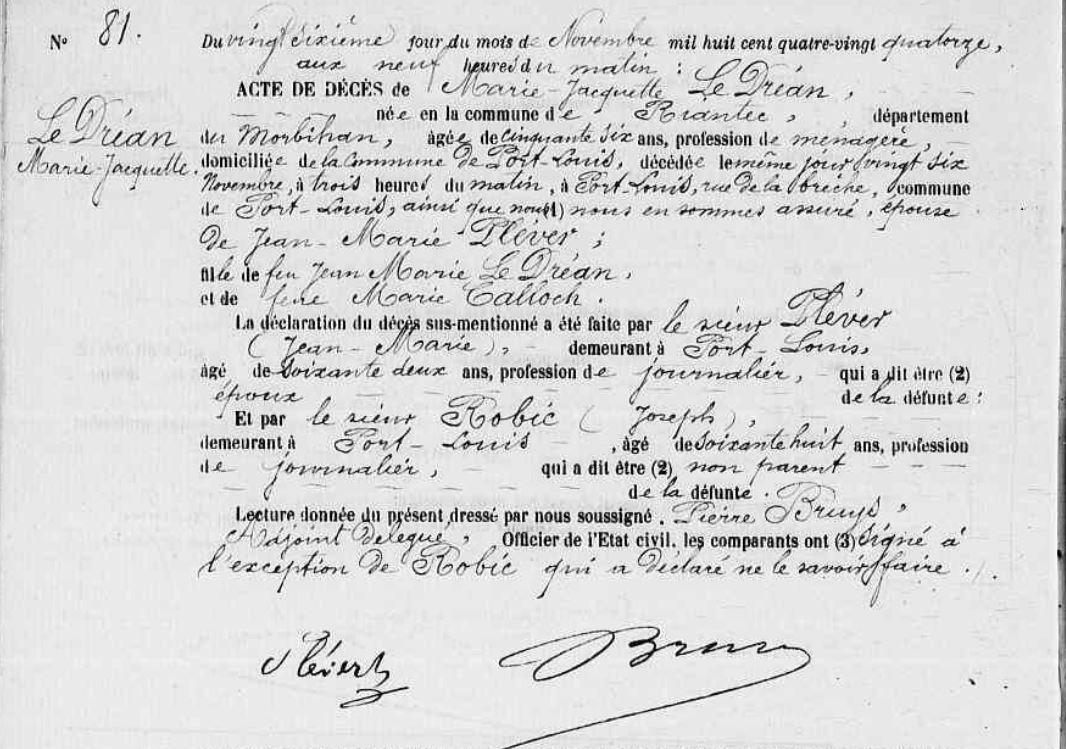 N° 81.
Le Dréan
Marie-Jacquette.
Du vingt sixième jour du mois de Novembre mil huit cent quatre-vingt quatorze,
aux neuf heures du matin :
ACTE DE DÉCÈS de Marie-Jacquette Le Dréan,
née en la commune de Riantec, département
du Morbihan, âgée de cinquante six ans, profession de ménagère,
domiciliée de la Commune de Port-Louis, décédée le même jour vingt six
Novembre, à trois heures du matin, à Port-Louis, rue de la brèche, commune
de Port-Louis, ainsi que nous (1) nous en sommes assuré, épouse
de Jean-Marie Pléver ;
fille de feu Jean Marie Le Dréan,
et de feue Marie Calloch.
La déclaration du décès sus-mentionné a été faite par le sieur Pléver
(Jean-Marie), demeurant à Port-Louis,
âgé de soixante deux ans, profession de journalier, qui a dit être (2)
époux de la défunte :
Et par le sieur Robic (Joseph),
demeurant à Port-Louis, âgé de soixante huit ans, profession
de journalier, qui a dit être (2) non parent
de la défunte.
Lecture donnée du présent dressé par nous soussigné. Pierre Bruys,
Adjoint délégué, Officier de l'Etat civil. les comparants ont (3) signé à
l'exception de Robic qui a déclaré ne le savoir faire ./.